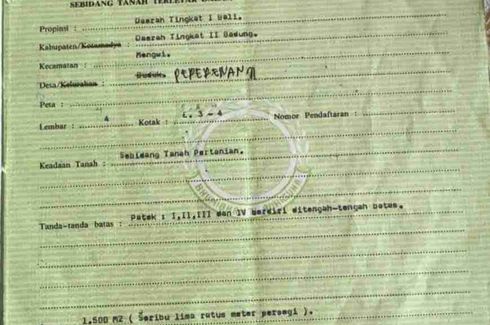 SEBIDANG TANAH TERLETAK DALAM
Propinsi : Daerah Tingkat I Bali.
Kabupaten/Kotamadya : Daerah Tingkat II Badung.
Kecamatan : Mengwi.
Desa/Kelurahan : Buduk. PEPERENAN
Peta :
Lembar : 4 Kotak : E. 3 - 4 Nomor Pendaftaran :
Keadaan Tanah : Sebidang Tanah Pertanian.
Tanda-tanda batas : Patok : I,II,III dan IV berdiri ditengah-tengah batas.
1.500 M2 ( Seribu lima ratus meter persegi ).